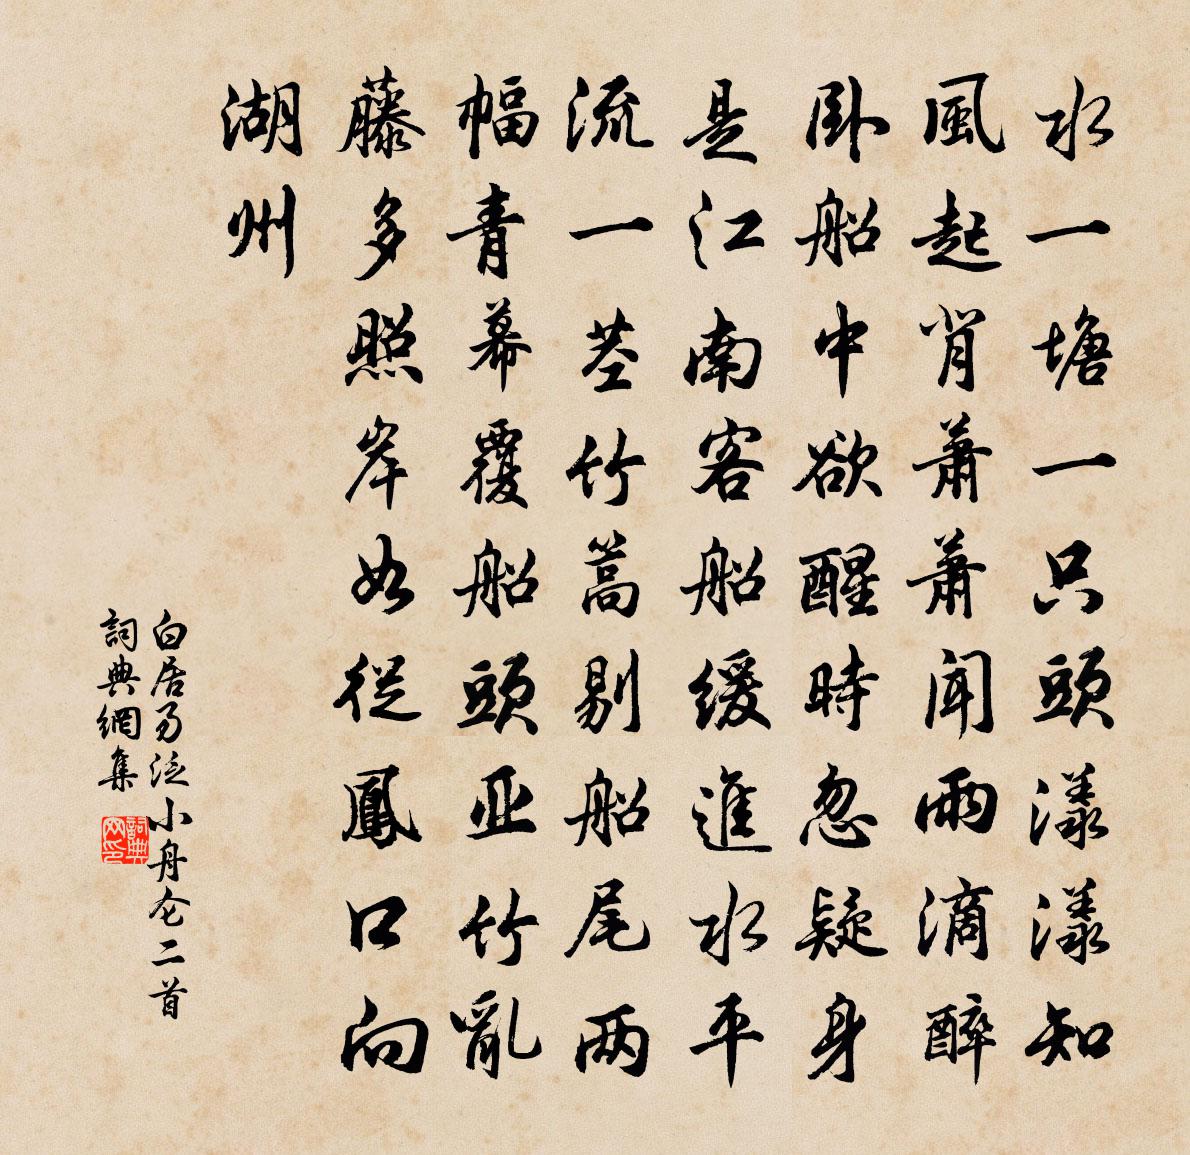 水一塘一只頭漾漾知
風起背蕭蕭聞雨滴醉
卧船中欲醒時忽疑身
是江南客船緩進水平
流一茎竹篙剔船尾两
幅青幕覆船頭亚竹亂
藤多照岸如從鳳口向
湖州
白居易泛小舟仑二首
詞典網集
詞典
网印